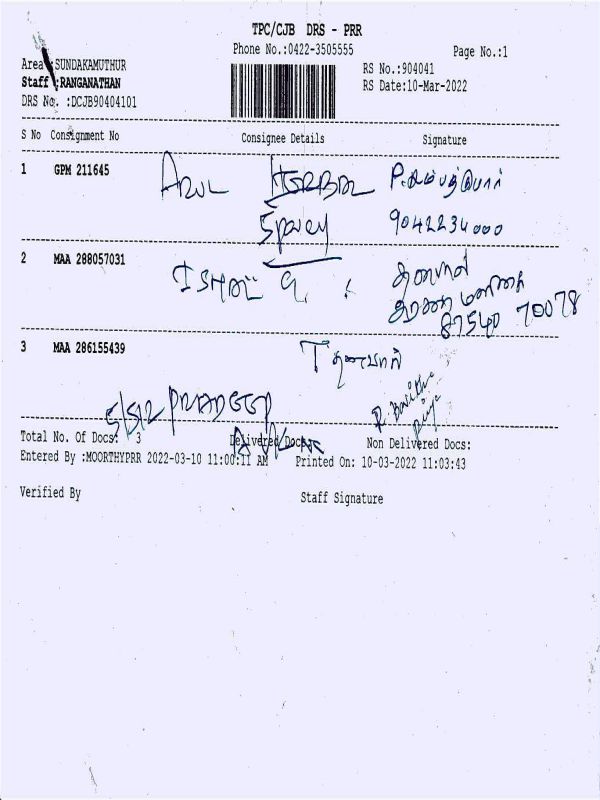 TPC/CJB DRS - PRR
Phone No.:0422-3505555
Page No.:1
Area :SUNDAKAMUTHUR
RS No.:904041
Staff :RANGANATHAN
RS Date:10-Mar-2022
DRS No. :DCJB90404101
S No Consignment No Consignee Details Signature
1 GPM 211645 ARUL
9042234000
2 MAA 288057031
87540 70078
3 MAA 286155439 T தனபால்
Total No. Of Docs: 3 Delivered Docs: Non Delivered Docs:
Entered By :MOORTHYPRR 2022-03-10 11:00:11 AM Printed On: 10-03-2022 11:03:43
Verified By Staff Signature